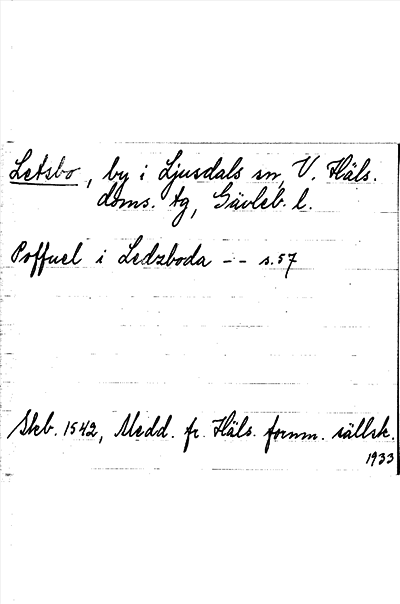 Letsbo, by i Ljusdals sn, V. Häls.
doms. tg, Gävleb. l.
Poffuel i Ledzboda -- s. 57
Skb. 1542, Medd. fr. Häls. fornm. sällsk.
1933